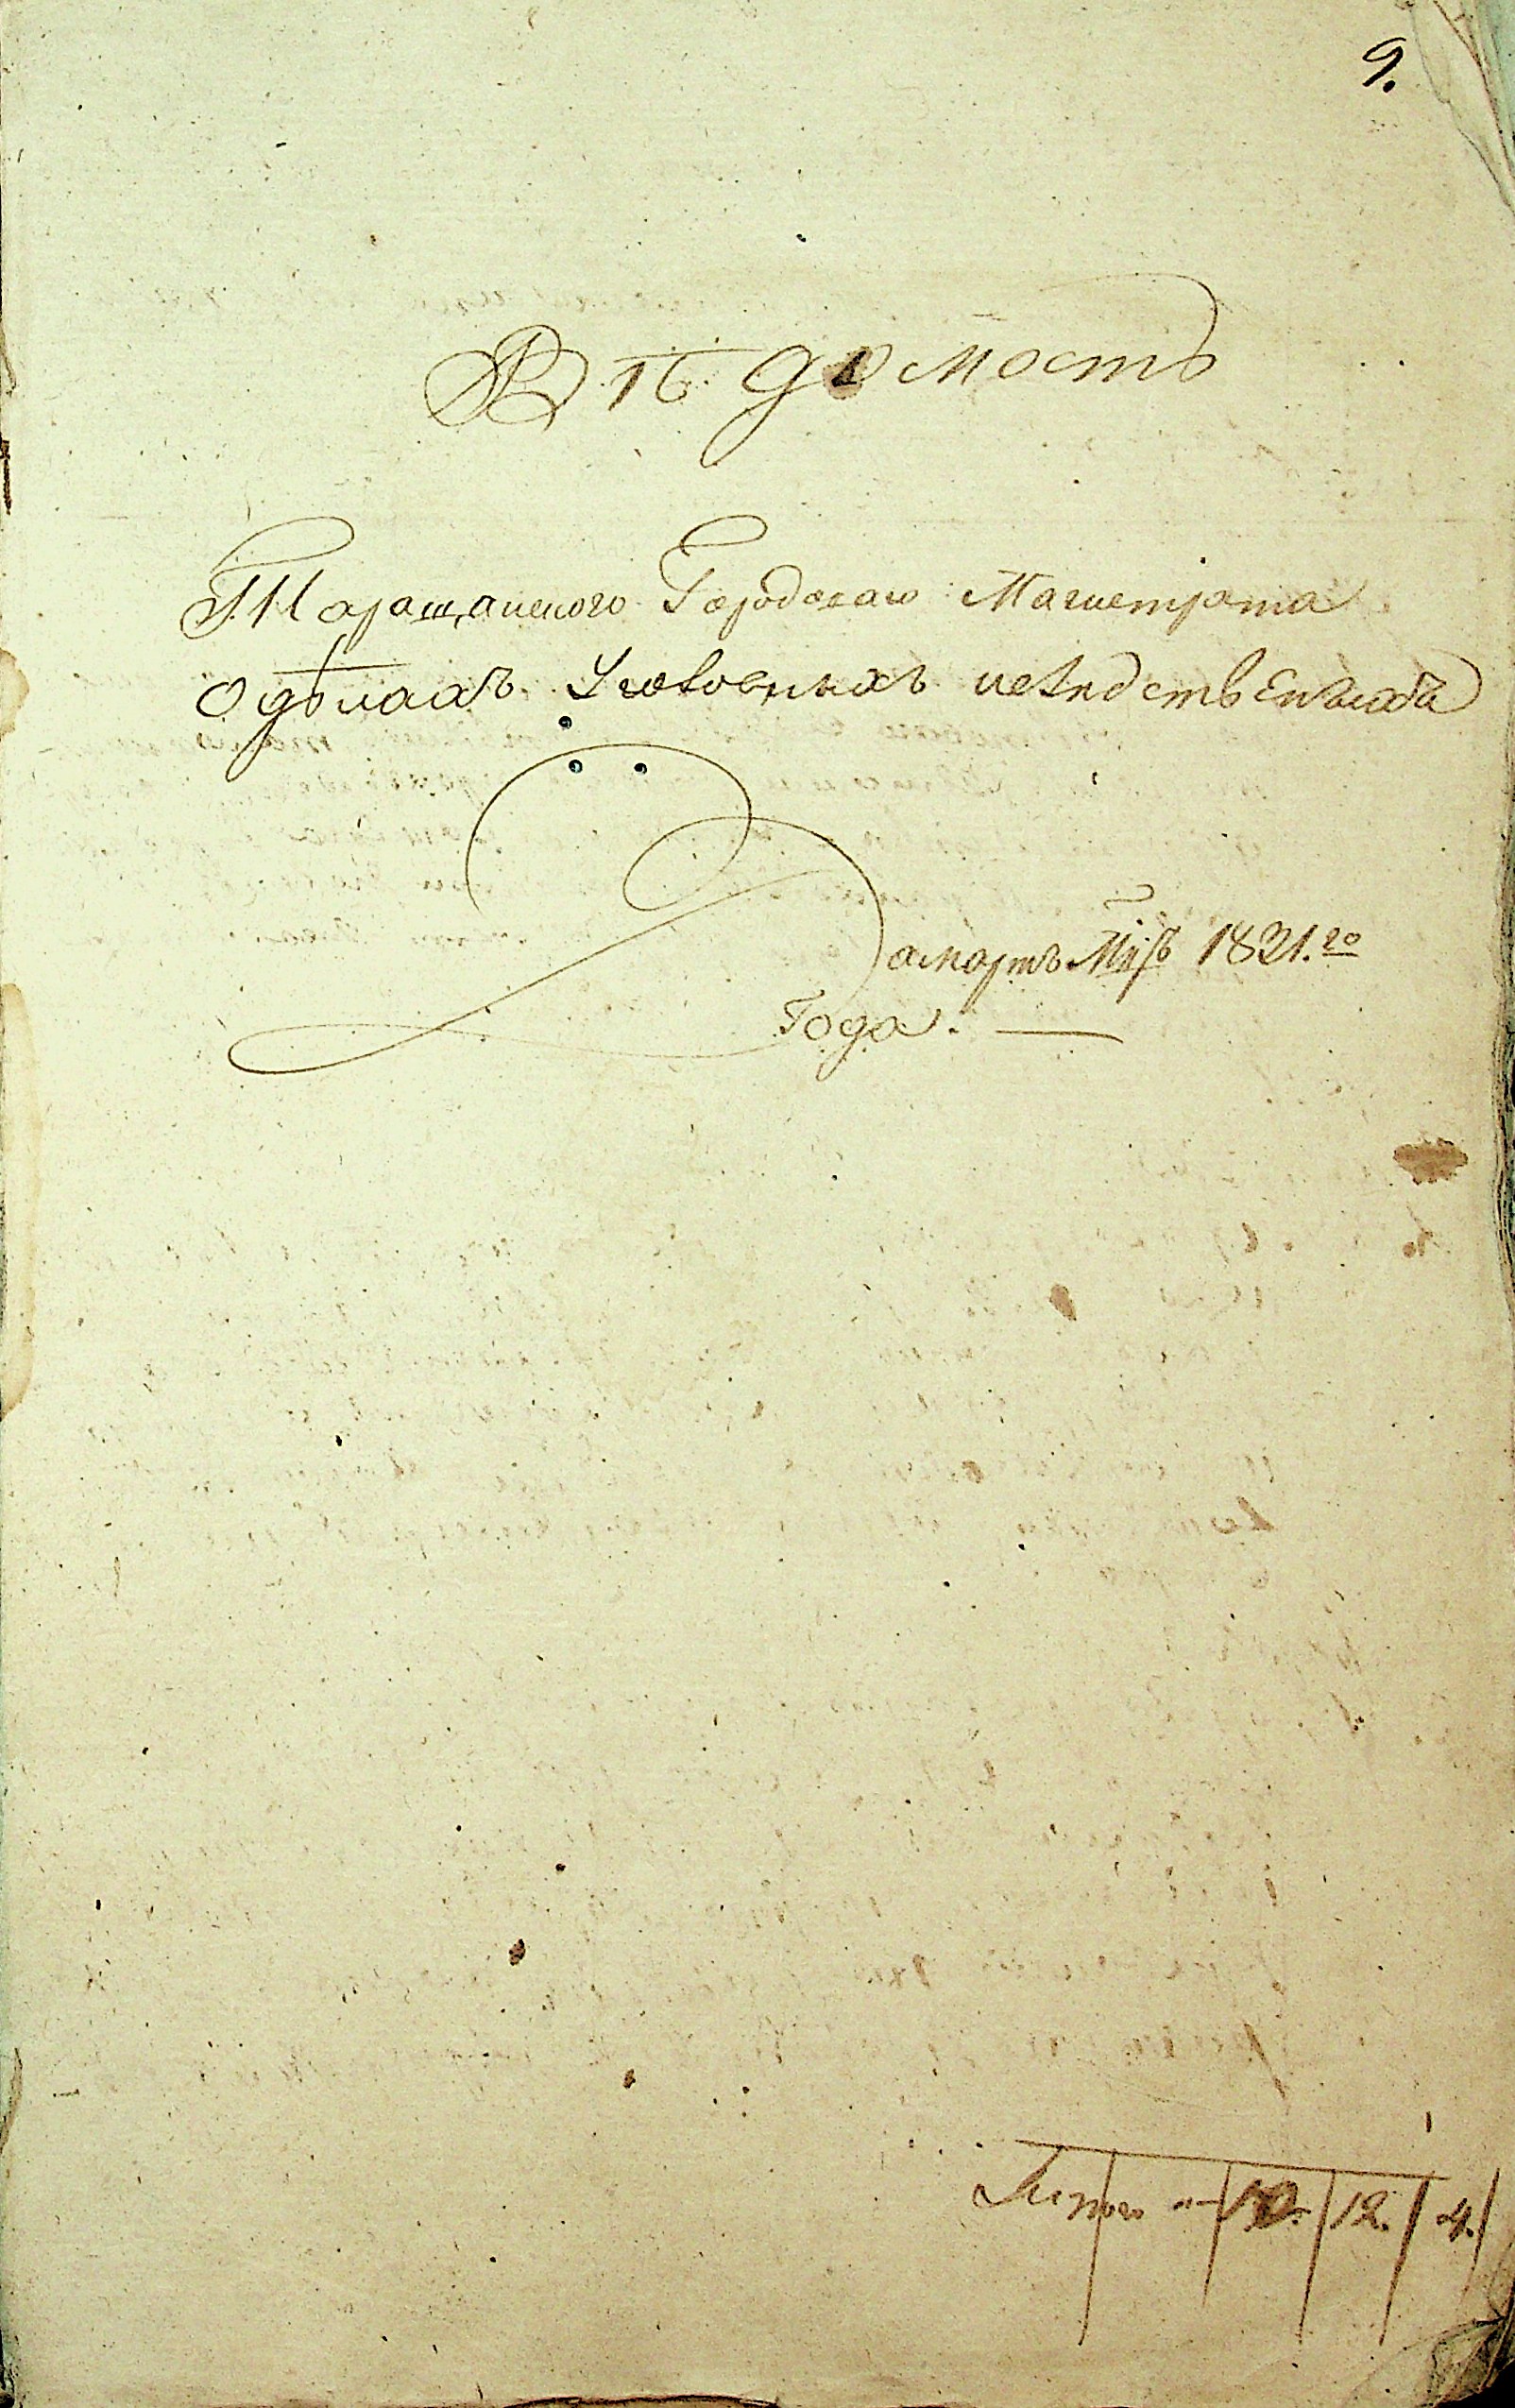 9.
Вѣдомость
Таращанского Городоваго Магистрата
О дѣлахъ Уголовныхъ иследственныхъ
За мартъ Мцъ 1821.го
Года.
Листого 12. 4.